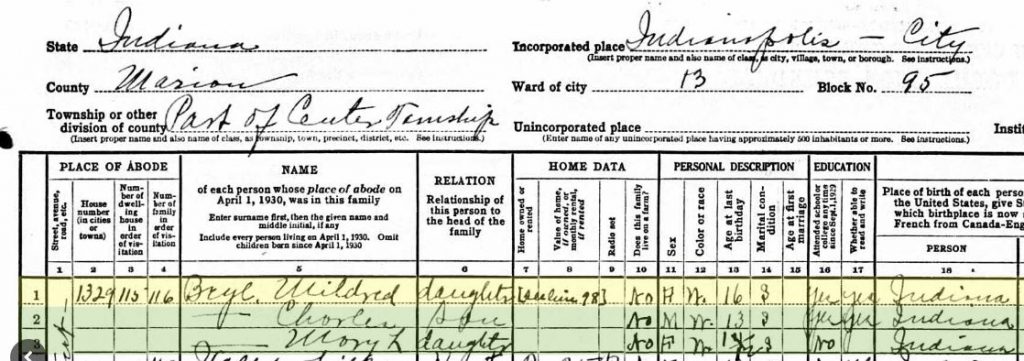 State Indiana
Incorporated place Indianapolis — City
(Insert proper name and also name of class, as city, village, town, or borough. See instructions.)
County Marion
Ward of city 13 Block No. 95
Township or other
division of county Part of Center Township
(Insert proper name and also name of class, as township, town, precinct, district, etc. See instructions.)
Unincorporated place
(Enter name of any unincorporated place having approximately 500 inhabitants or more. See instructions.)
Instit
PLACE OF ABODE
Street, avenue, road, etc.
House number (in cities or towns)
Num- ber of dwell- ing house in order of vis- itation
Num- ber of family in order of vis- itation
NAME
of each person whose place of abode on
April 1, 1930, was in this family
Enter surname first, then the given name and
middle initial, if any
Include every person living on April 1, 1930. Omit
children born since April 1, 1930
RELATION
Relationship of
this person to the
head of the
family
HOME DATA
Home owned or rented
Value of home, if owned, or monthly rental, if rented
Radio set
Does this family live on a farm?
PERSONAL DESCRIPTION
Sex
Color or race
Age at last birthday
Marital con- dition
Age at first marriage
EDUCATION
Attended school or college any time since Sept. 1, 1929
Whether able to read and write
Place of birth of each perso
the United States, give S
which birthplace is now
French from Canada-Eng
PERSON
1 2 3 4 5 6 7 8 9 10 11 12 13 14 15 16 17 18
1 1329 115 116 Mildred daughter No F W 16 S Yes Yes Indiana
2 — Charles Son No M W 13 S Yes Yes Indiana
3 — Mary L daughter No F W S No Indiana